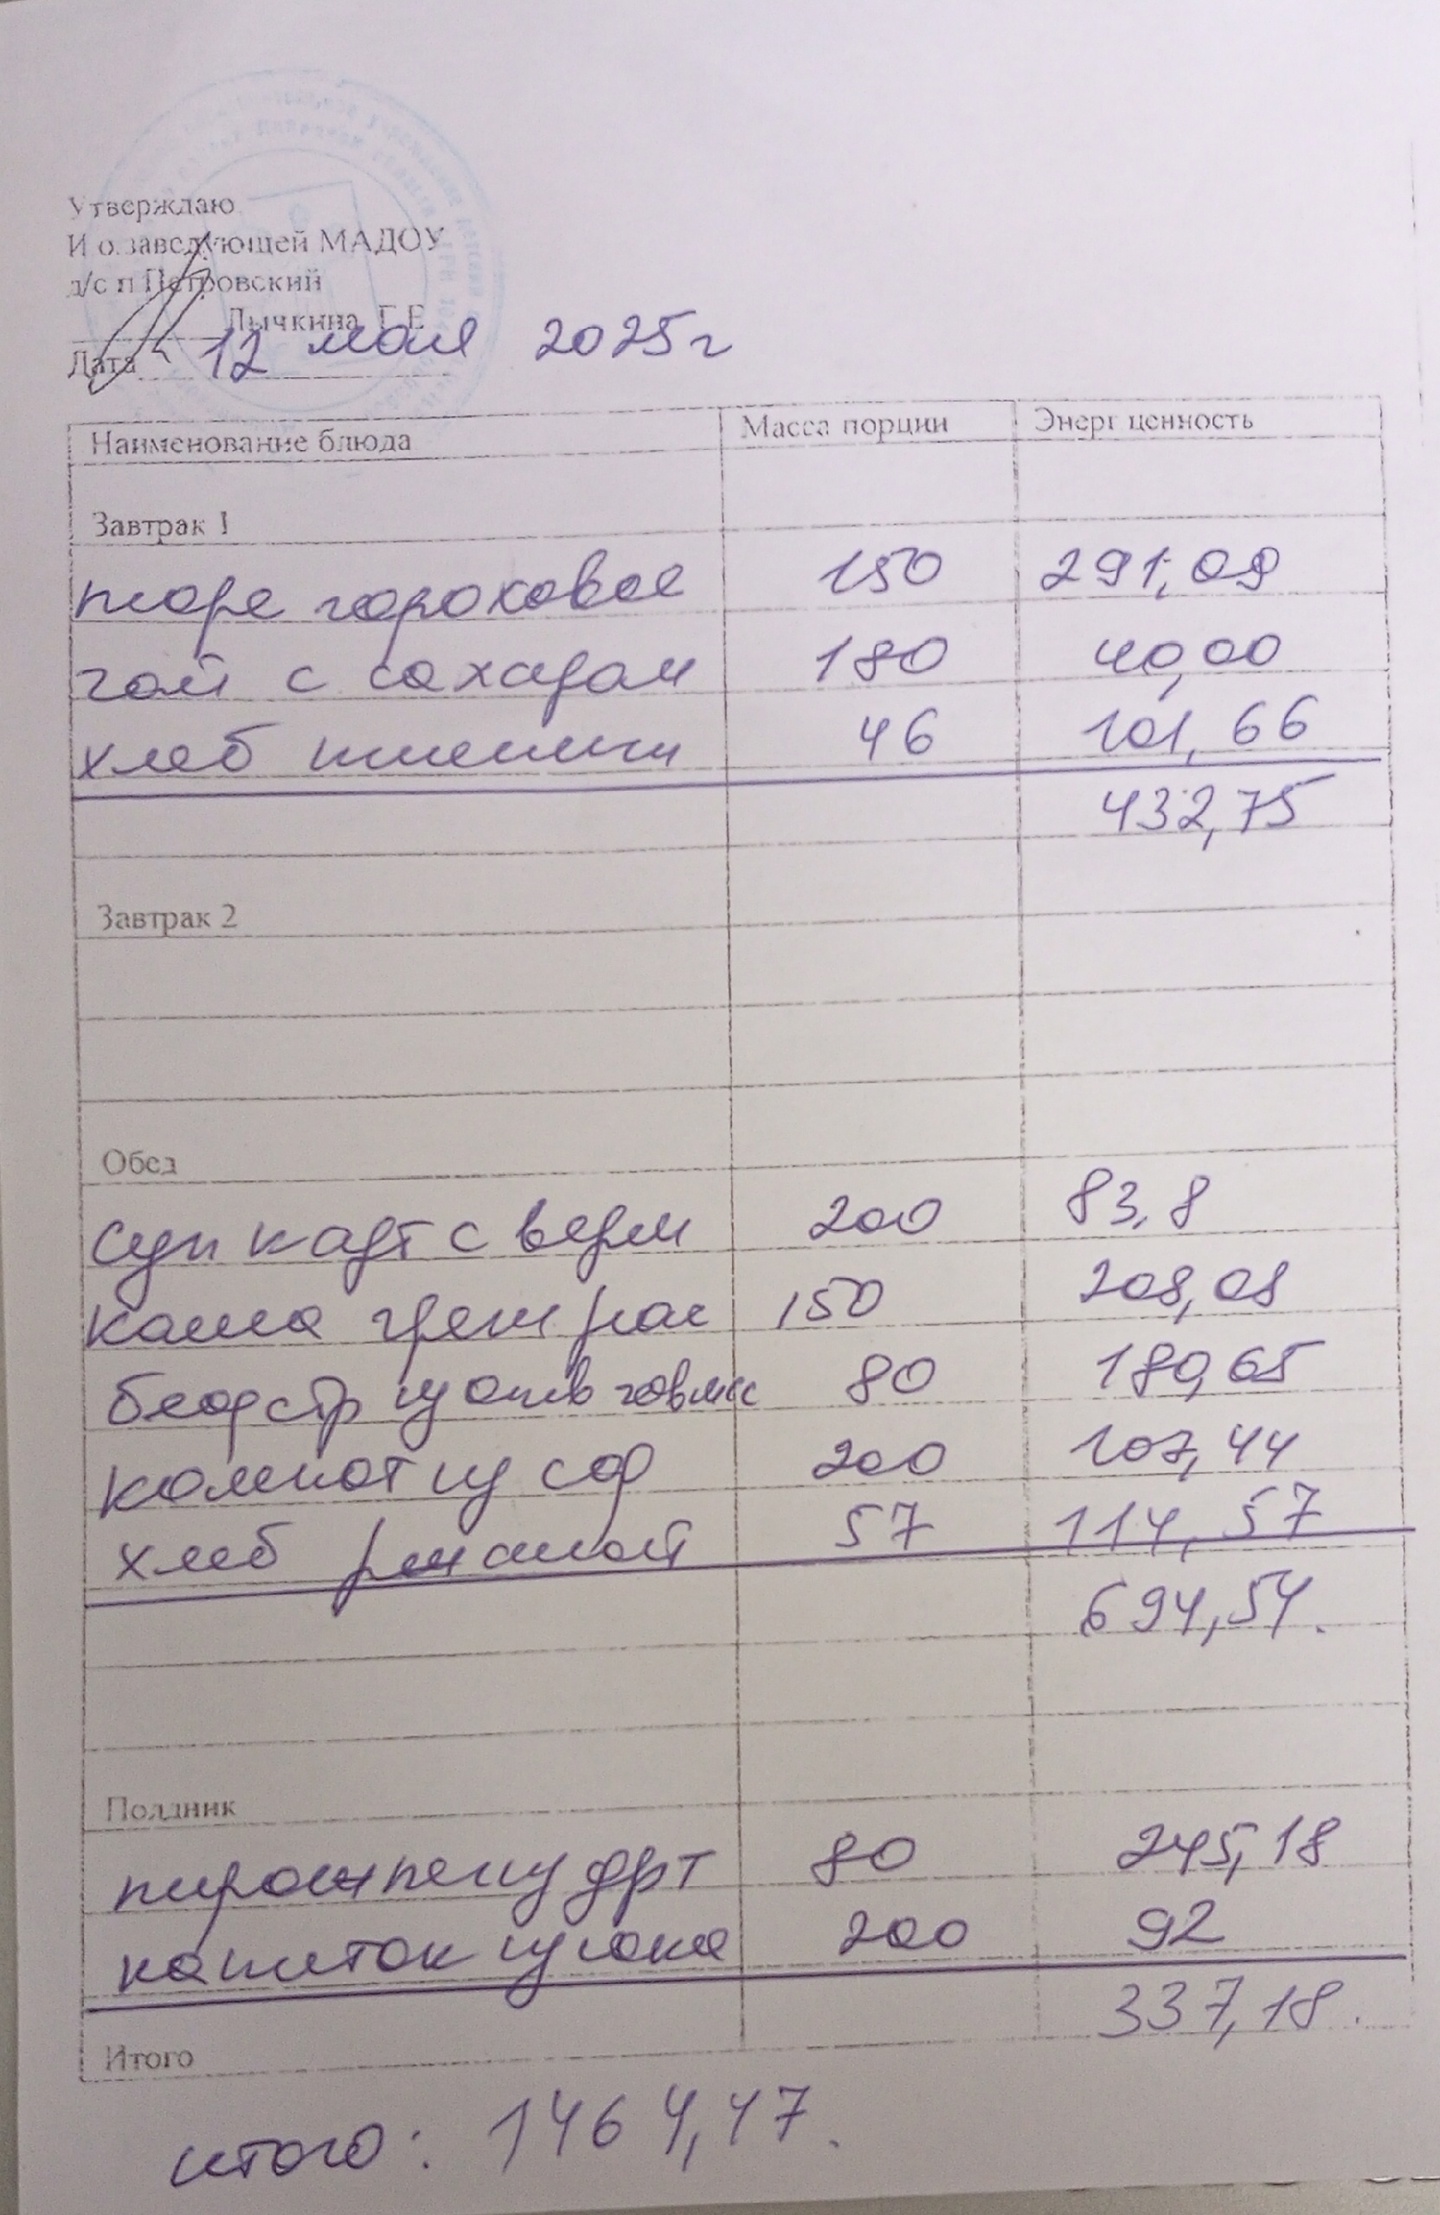 Утверждаю
И о.заведующей МАДОУ
д/с п Петровский
Лычкина Г.Е
Дата 12 мая 2025г
Наименование блюда Масса порции Энерг ценность
Завтрак 1
пюре гороховое 150 291,09
чай с сахаром 180 40,00
хлеб пшенич 46 101,66
432,75
Завтрак 2
Обед
суп карт с верм 200 83,8
каша греч рас 150 208,08
бефстр из отв говяж 80 180,65
компот из сф 200 107,44
хлеб ржаной 57 114,57
694,54.
Полдник
пирож печ 80 245,18
напиток из сока 200 92
337,18.
Итого
итого: 1464,47.